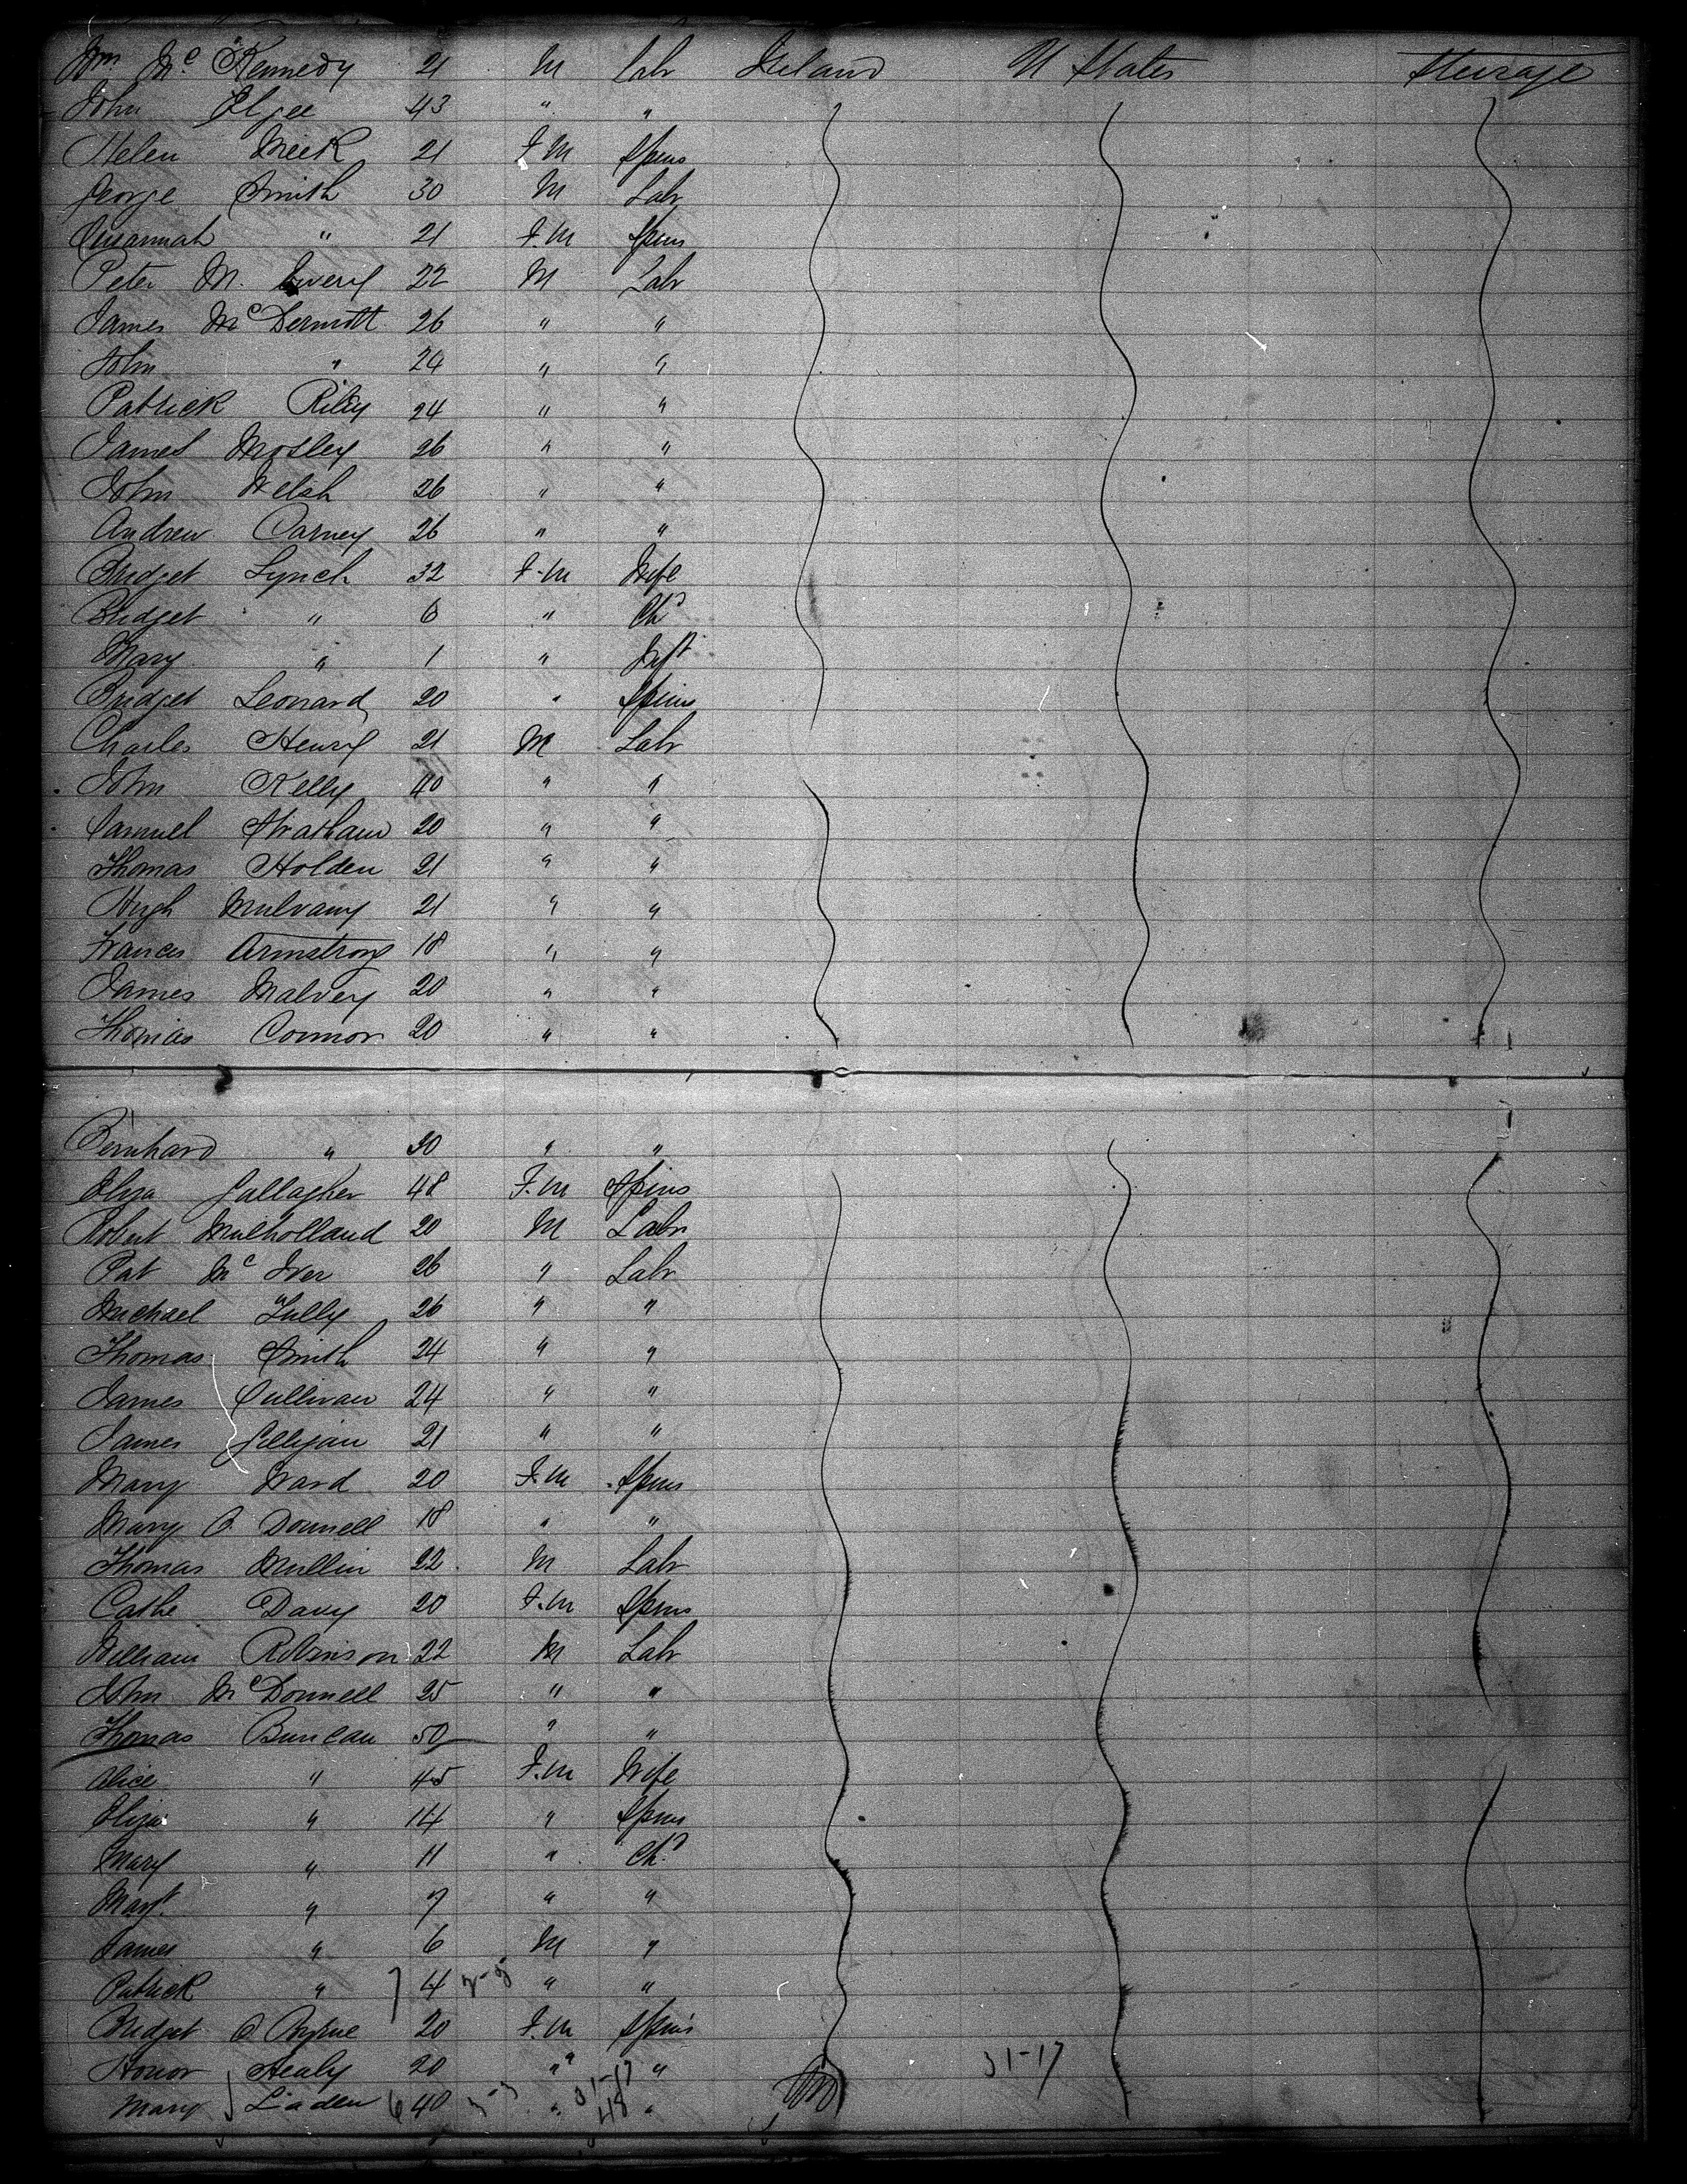 Wm Mc Kennedy 21 M Labr Ireland U States Steerage
John Elgee 43 " "
Helen Meek 21 F.M Spins
George Smith 30 M Labr
Susannah " 21 F.M Spins
Peter M. 22 M Labr
James McDermott 26 " "
John " 24 " "
Patrick Riley 24 " "
James Mosley 26 " "
John Welsh 26 " "
Andrew Carney 26 " "
Bridget Lynch 32 F.M Wife
Bridget " 6 " Chd
Mary " 1 " Inft
Bridget Leonard 20 " Spins
Charles Henry 21 M Labr
John Kelly 40 " "
Samuel 20 " "
Thomas Holden 21 " "
Hugh Mulvany 21 " "
Francis Armstrong 18 " "
James Malvey 20 " "
Thomas Connor 20 " "
Bernhard " 30 " "
Eliza Gallagher 48 F.M Spins
Robert Mulholland 20 M Labr
Pat Mc Iver 26 " Labr
Michael Tully 26 " "
Thomas Smith 24 " "
James Sullivan 24 " "
James Gilligan 21 " "
Mary Ward 20 F.M Spins
Mary O Donnell 18 " "
Thomas Mullin 22 M Labr
Cathe Davy 20 F.M Spins
William Robinson 22 M Labr
John McDonnell 25 " "
Thomas Duncan 50 " "
Alice " 45 F.M Wife
Eliza " 14 " Spins
Mary " 11 " Chd
Margt " 7 " "
James " 6 M "
Patrick " 4 " "
Bridget O Byrne 20 F.M Spins
Honor Healy 20 " " 31-17
Mary Liaden 40 " "